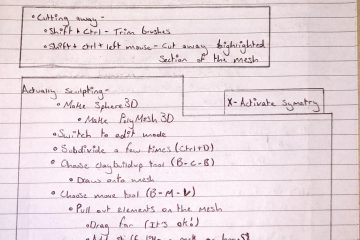 • Cutting away -
• Shift + Ctrl - Trim brushes
• Shift + ctrl + left mouse - Cut away highlighted
section of the mesh
Actually sculpting -
• Make Sphere 3D
• Make PolyMesh 3D
X - Activate symetry
• Switch to edit mode
• Subdivide a few times (Ctrl + D)
• Choose claybuildup tool (B-C-B)
• Draw onto mesh
• Choose move tool (B-M-V)
• Pull out elements on the mesh
• Drag far (It's ok!)